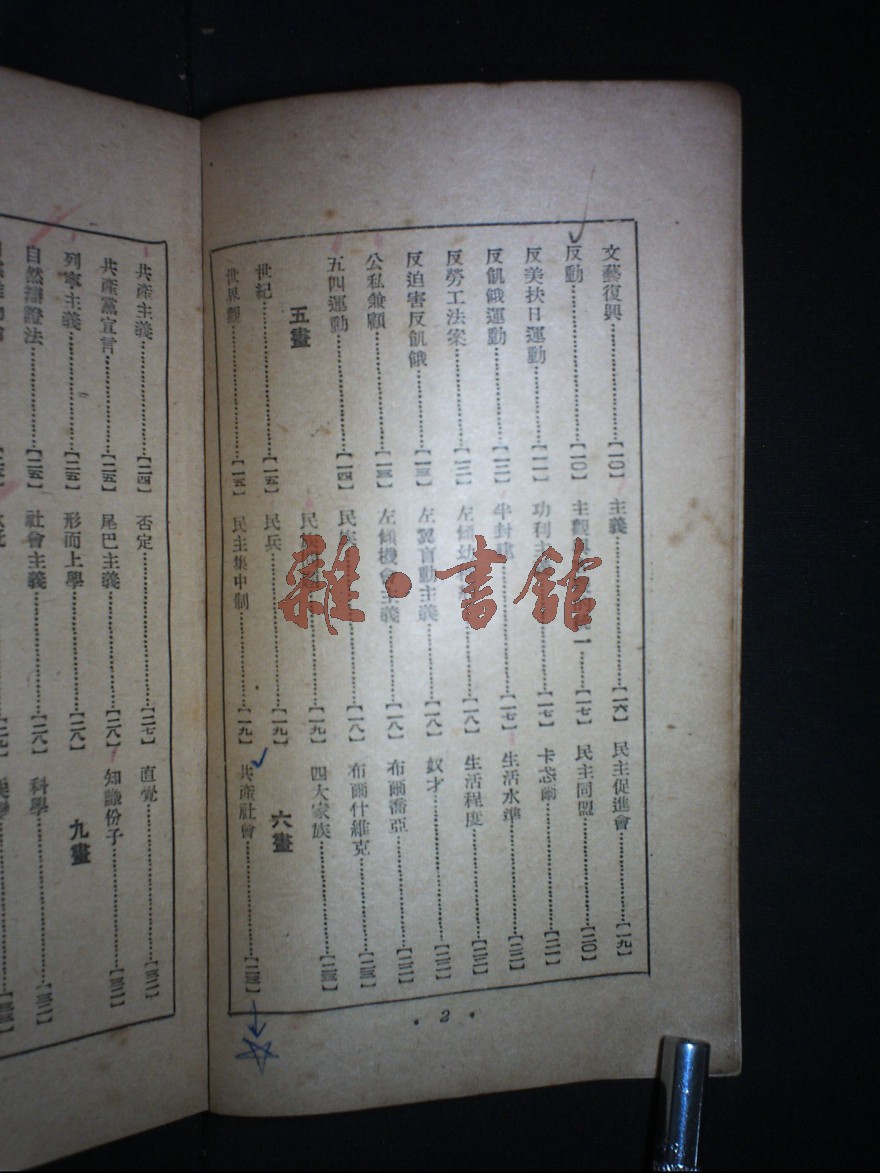 文藝復興【一〇】
反動【一〇】
反美扶日運動【一一】
反飢餓運動【一二】
反勞工法案【一二】
反迫害反飢餓【一三】
公私兼顧【一三】
五四運動【一四】
五畫
世紀【一五】
世界觀【一五】
主義【一六】
主觀
功利主
半封建【一七】
左傾幼
左翼盲動主義【一八】
左傾機會主義【一八】
民族
民族
民兵【一九】
民主集中制【一九】
民主促進會【一九】
民主同盟【二〇】
卡忒爾【二一】
生活水準
生活程度
奴才
布爾喬亞
布爾什維克
四大家族
六畫
共產社會
雜·書館
2
共產主義【二四】
共產黨宣言【二五】
列寧主義【二五】
自然辯證法【二五】
否定【二七】
尾巴主義【二八】
形而上學【二八】
社會主義【二八】
直覺
知識份子
九畫
科學